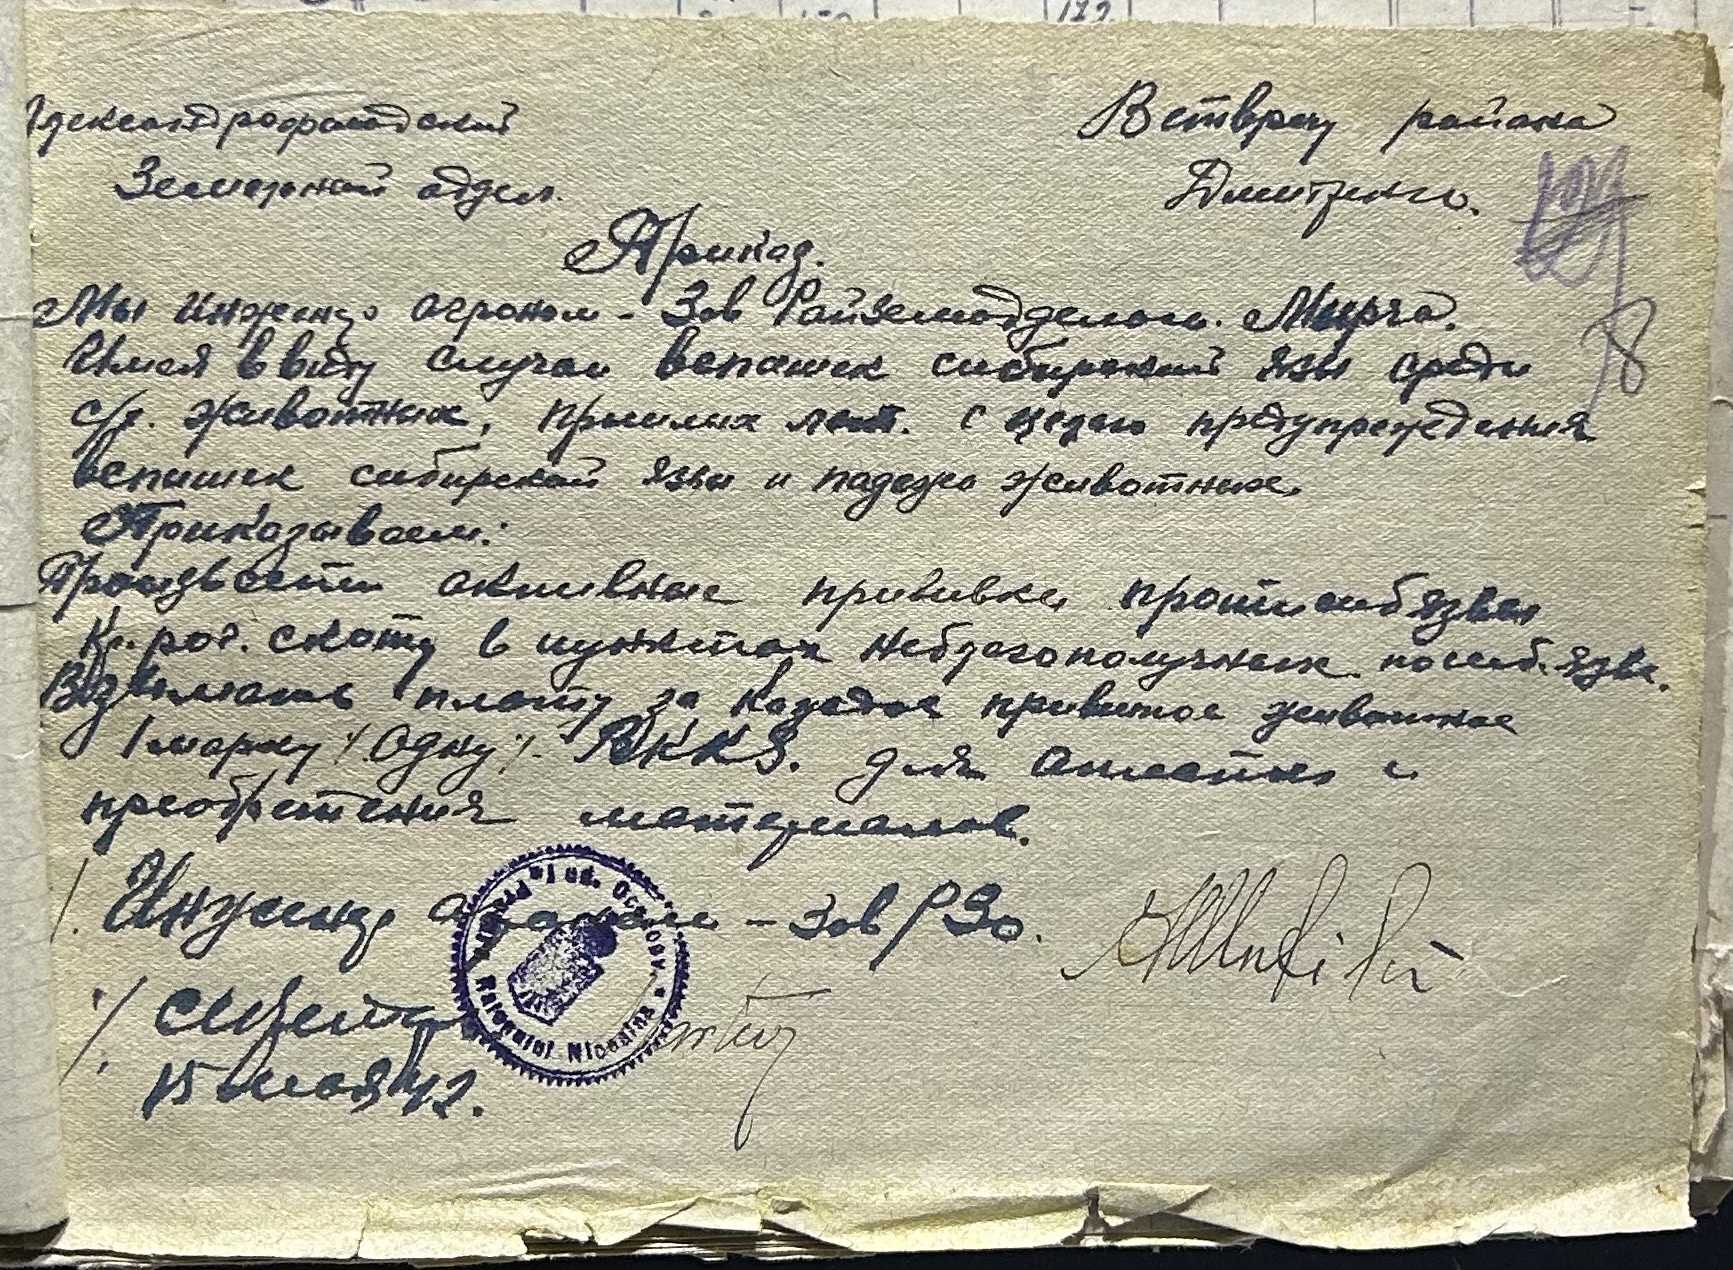 Александрофельдский
Земельный отдел.
Ветврачу района
Дмитриенко.
Приказ.
Мы инженер агроном - Зав Райземотделом. Мирча.
Имея ввиду случаи вспышек сибирской язвы среди
с/х. животных, прошлых лет. с целью предупреждения
вспышек сибирской язвы и падежа животных.
Приказываем:
Произвести активные прививки против сиб язвы
Кр. рог. скоту в пунктах неблагополучных по сиб. язве.
Взымать плату за каждое привитое животное
1 марку /одну/- RKKS. для оплаты и
преобретения материалов.
/. Инженер агроном - Зав РЗо.
/. Секретарь
15 мая 42.
78
Raionului